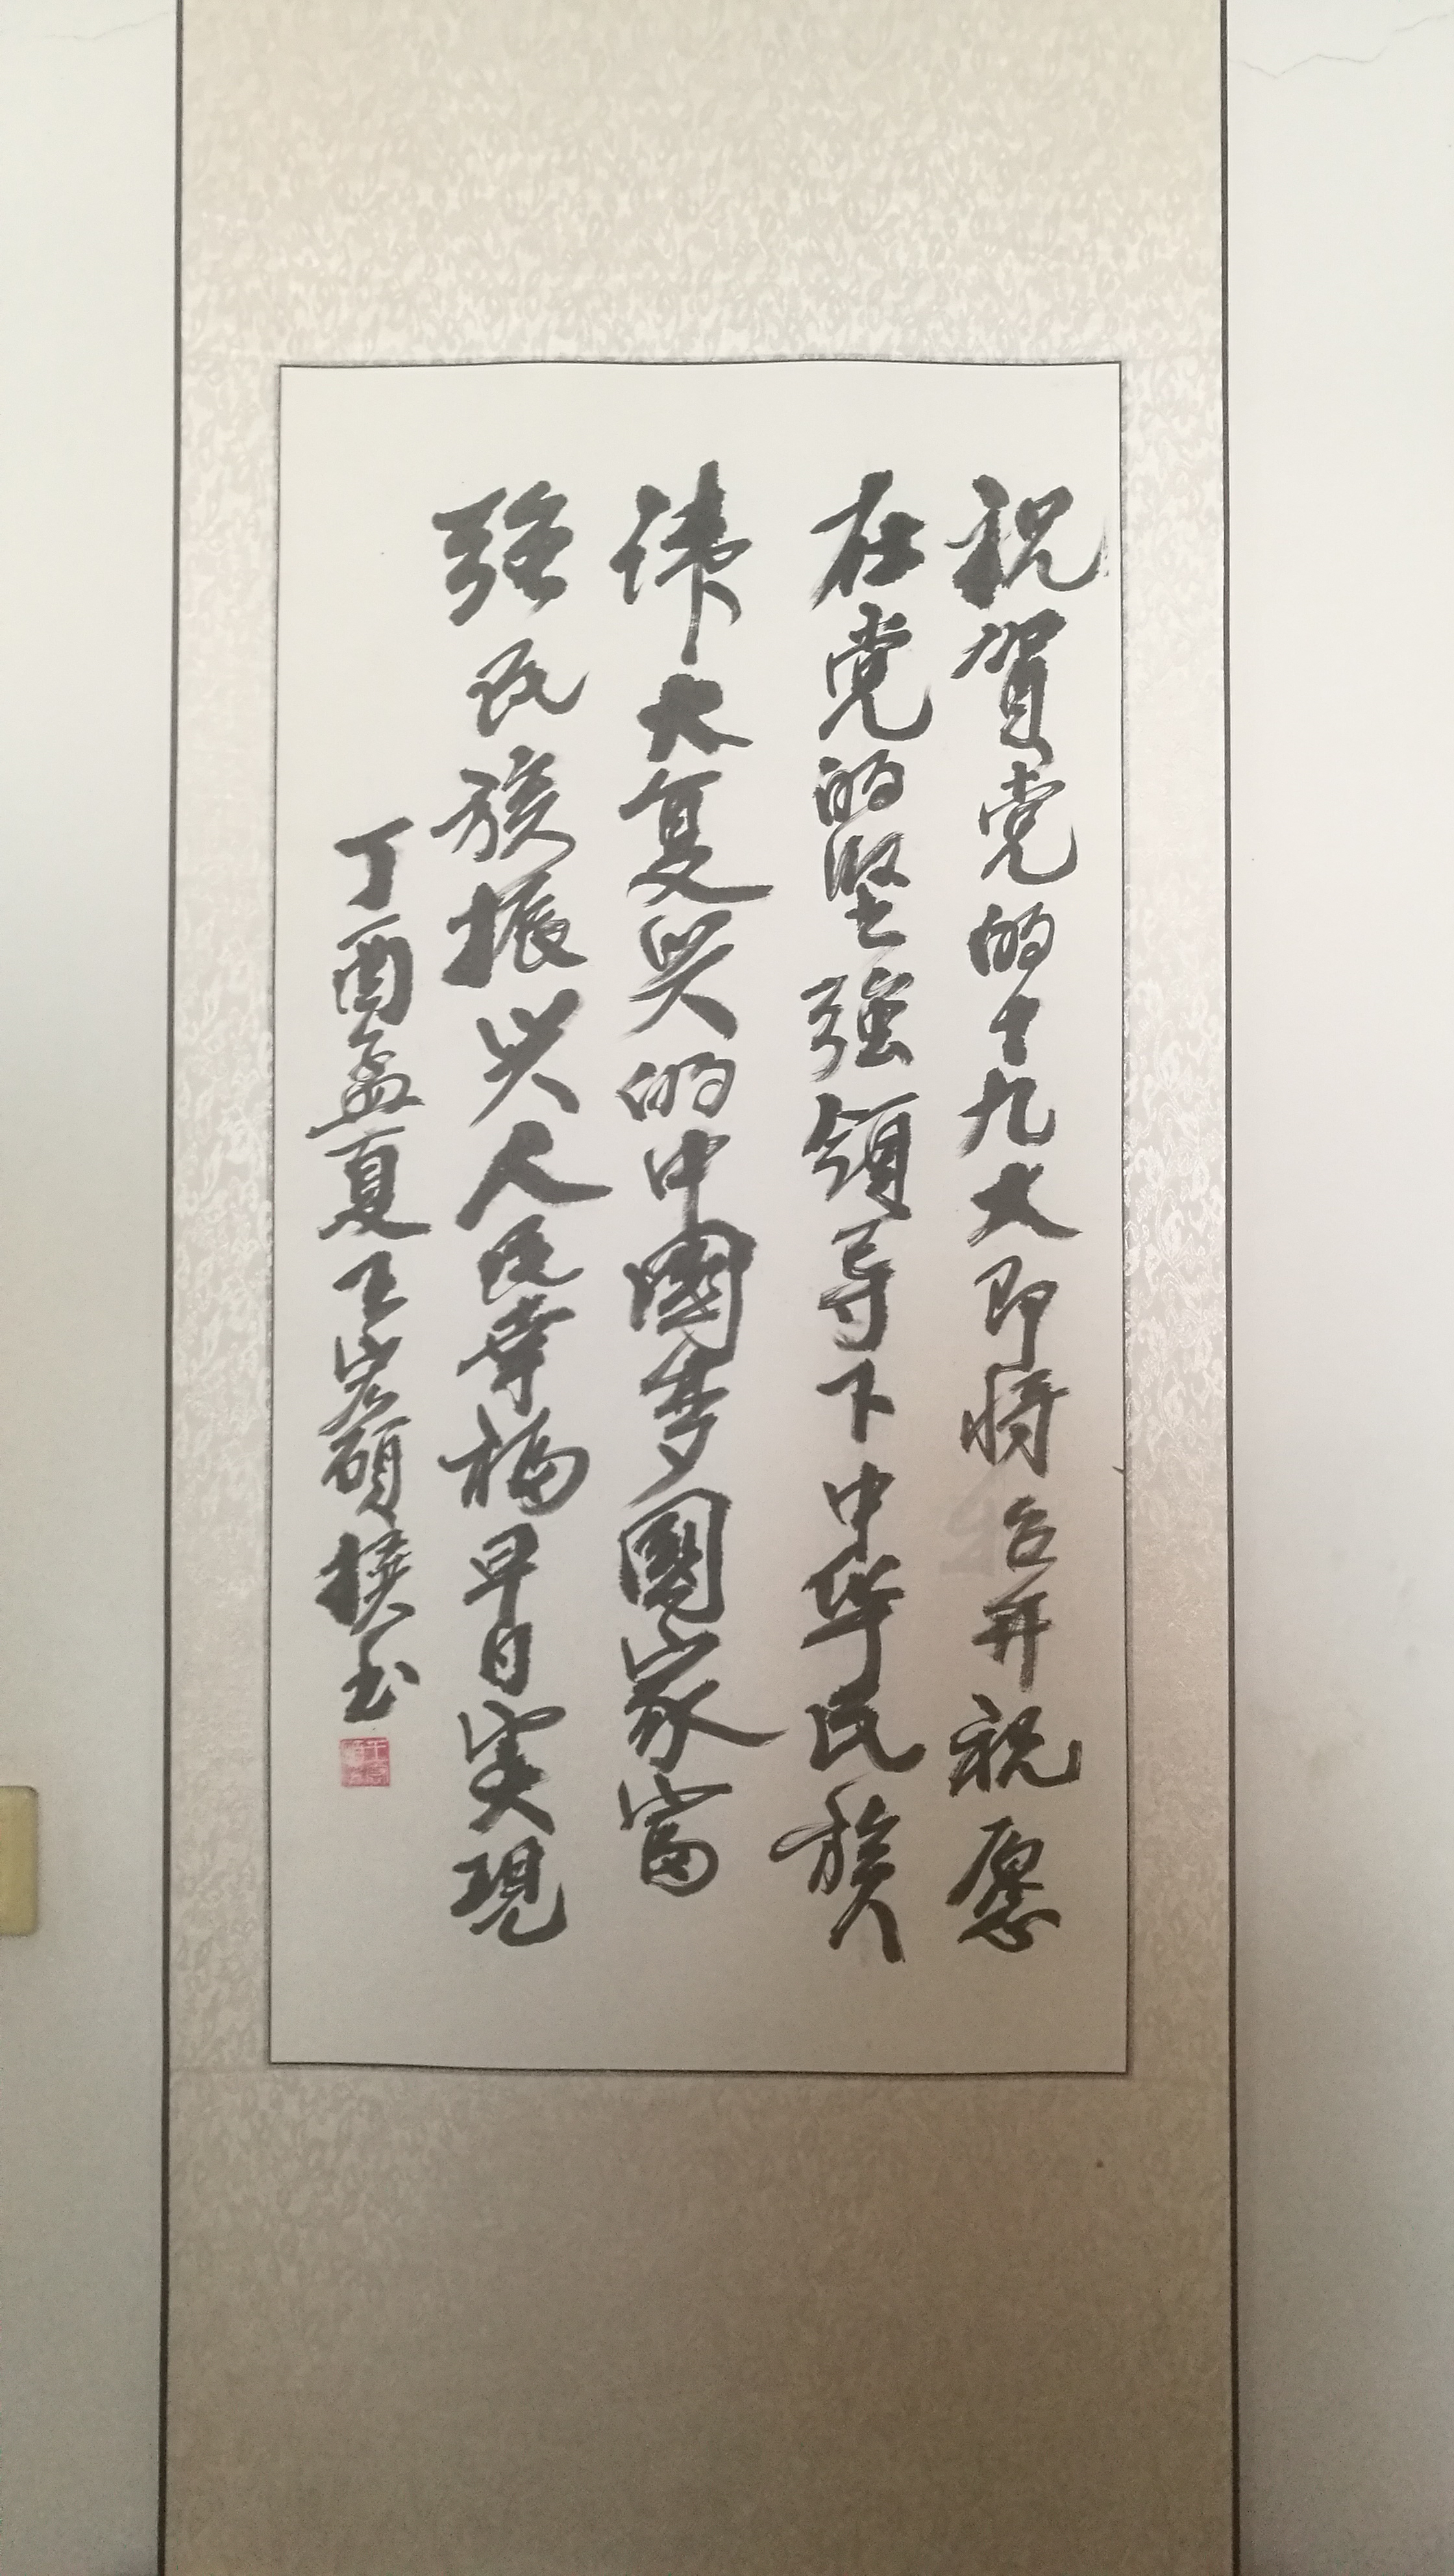 祝贺党的十九大即将召开祝愿
在党的坚强领导下中华民族
伟大复兴的中國梦國家富
强民族振兴人民幸福早日实现
丁酉孟夏王宏硕撰书